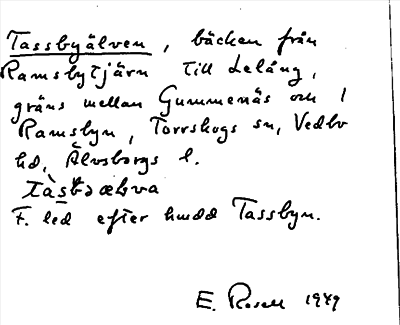 Tassbyälven, bäcken från
Ramsbytjärn till Lelång,
gräns mellan Gummenäs och
Ramsbyn, Torrskogs sn, Vedbo
hd, Älvsborgs l.
F. led efter hmdd Tassbyn.
E. Rosell 1949